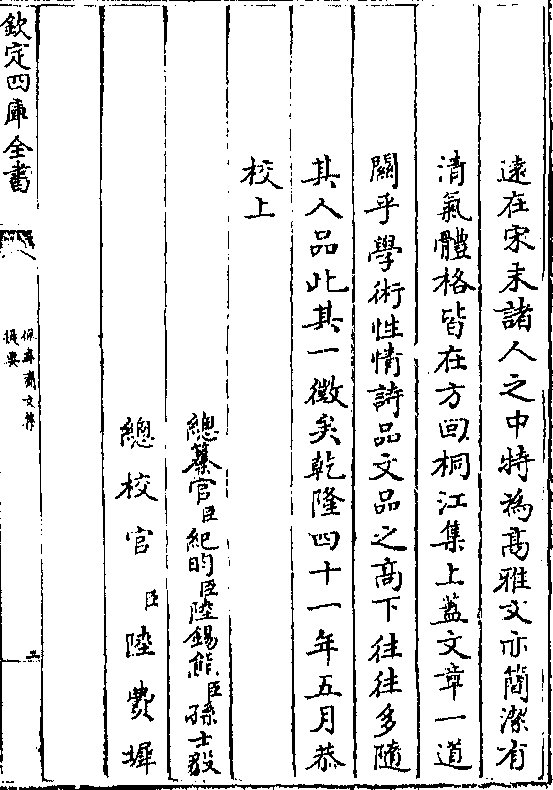 遠在宋末諸人之中特為高雅文亦簡潔有
清氣體格皆在方回桐江集上蓋文章一道
關乎學術性情詩品文品之高下往往多隨
其人品此其一徵矣乾隆四十一年五月恭
校上
總纂官臣紀昀臣陸錫熊臣孫士毅
總校官臣陸費墀
欽定四庫全書
提要